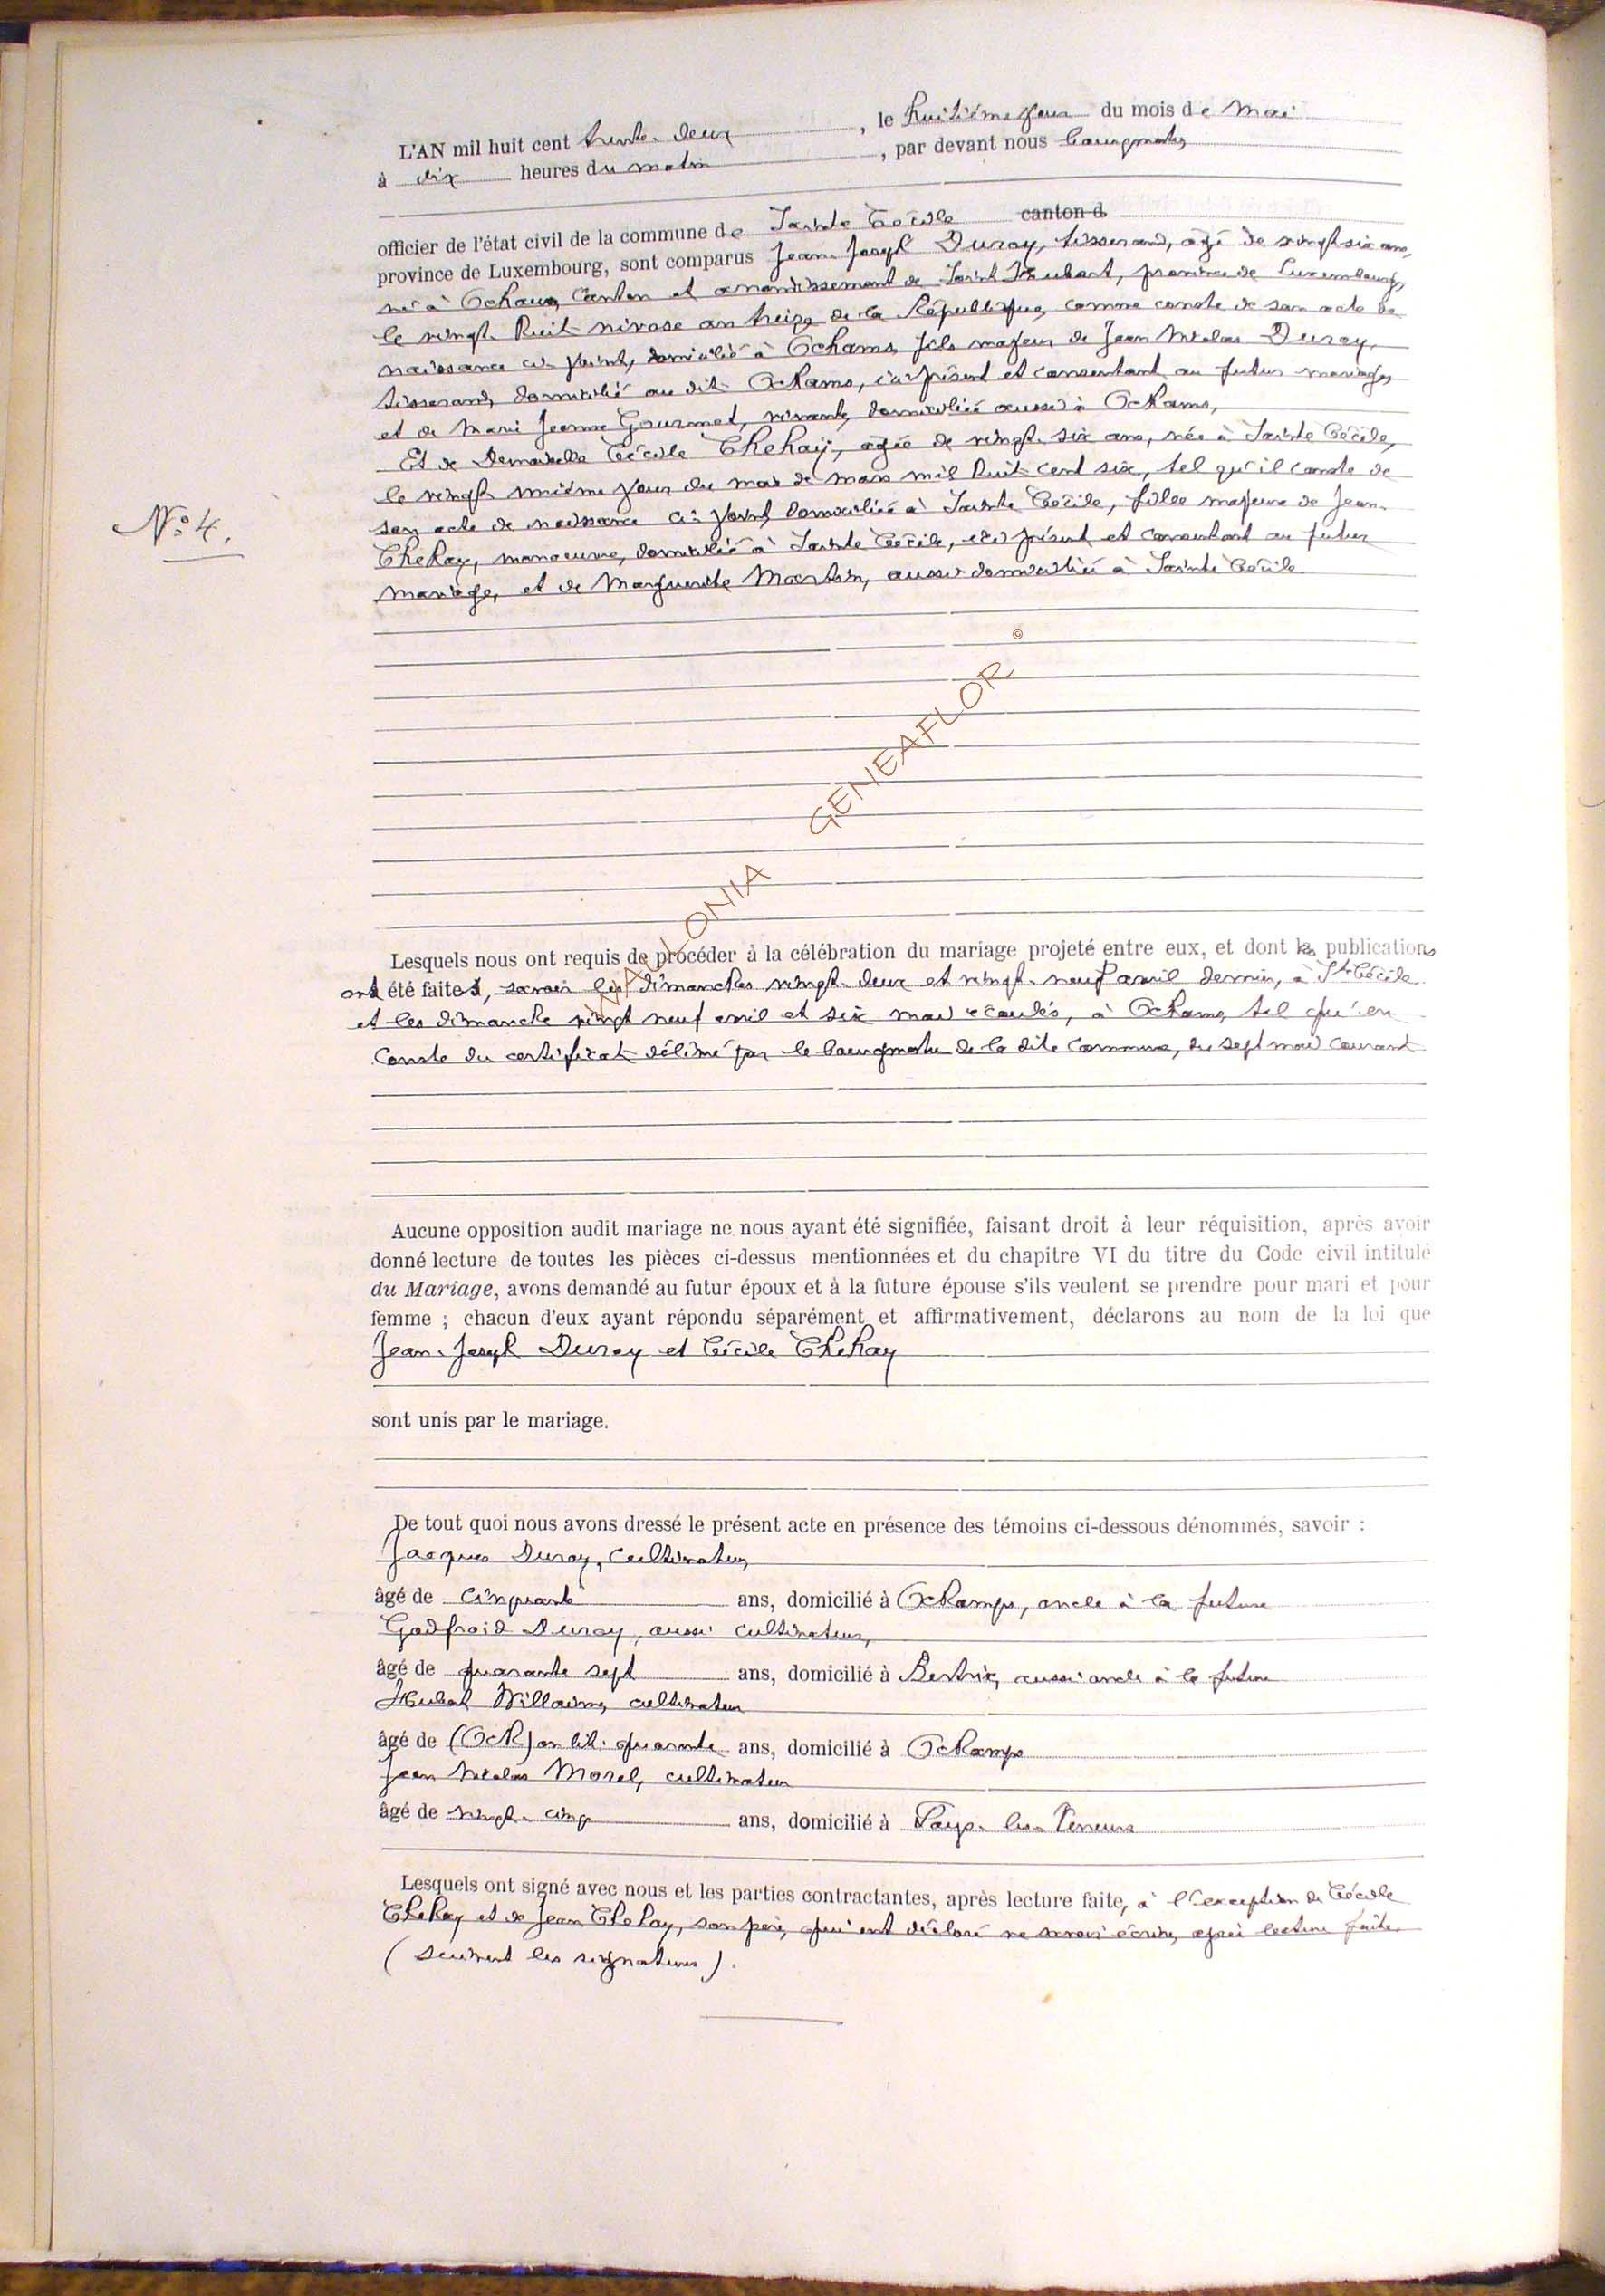 L'AN mil huit cent trente-deux, le huitième jour du mois de Mai
à dix heures du matin, par devant nous bourgmestre,
officier de l'état civil de la commune de Sainte Cécile canton d
province de Luxembourg, sont comparus Jean-Joseph Duroy, tisserand, âgé de vingt six ans,
né à Ochamps, Canton et arrondissement de Saint Hubert, province de Luxembourg,
le vingt-huit nivose an treize de la République, comme conste de son acte de
naissance ci-joint, domicilié à Ochamps, fils majeur de Jean Nicolas Duroy,
tisserand, domicilié au dit Ochamps, ici présent et consentant au futur mariage,
et de Marie Jeanne Gourmet, vivante, domiciliée aussi à Ochams,
Et de Demoiselle Cécile Thehay, âgée de vingt-six ans, née à Sainte Cécile,
le vingt-unième jour du mois de mars mil huit cent six, tel qu'il conste de
son acte de naissance ci-joint, domiciliée à Sainte Cécile, fille majeure de Jean-
Thehay, manoeuvre, domicilié à Sainte Cécile, ici présent et consentant au futur
mariage, et de Marguerite Martin, aussi domiciliée à Sainte Cécile
N° 4.
WALLONIA GENEAFLOR ©
Lesquels nous ont requis de procéder à la célébration du mariage projeté entre eux, et dont les publications
ont été faites, savoir les dimanches vingt-deux et vingt-neuf avril dernier, à Ste Cécile
et les dimanche vingt neuf avril et six mai écoulés, à Ochamps, tel qu'en
Conste du certificat délivré par le bourgmestre de la dite Commune, du sept mai courant
Aucune opposition audit mariage ne nous ayant été signifiée, faisant droit à leur réquisition, après avoir
donné lecture de toutes les pièces ci-dessus mentionnées et du chapitre VI du titre du Code civil intitulé
du Mariage, avons demandé au futur époux et à la future épouse s'ils veulent se prendre pour mari et pour
femme ; chacun d'eux ayant répondu séparément et affirmativement, déclarons au nom de la loi que
Jean-Joseph Duroy et Cécile Thehay
sont unis par le mariage.
De tout quoi nous avons dressé le présent acte en présence des témoins ci-dessous dénommés, savoir :
Jacques Duroy, Cultivateur,
âgé de Cinquante ans, domicilié à Ochamps, oncle à la future
Godfroid Duroy, aussi cultivateur,
âgé de quarante sept ans, domicilié à Bertrix, aussi oncle à la future
Hubert Willaime, cultivateur
âgé de (Och) on lit: quarante ans, domicilié à Ochamps
Jean Nicolas Morel, cultivateur
âgé de vingt-cinq ans, domicilié à Fays-les-Veneurs
Lesquels ont signé avec nous et les parties contractantes, après lecture faite, à l'exception de Cécile
Thehay et de Jean Thehay, son père, qui ont déclaré ne savoir écrire, après lecture faite.
(Suivent les signatures).